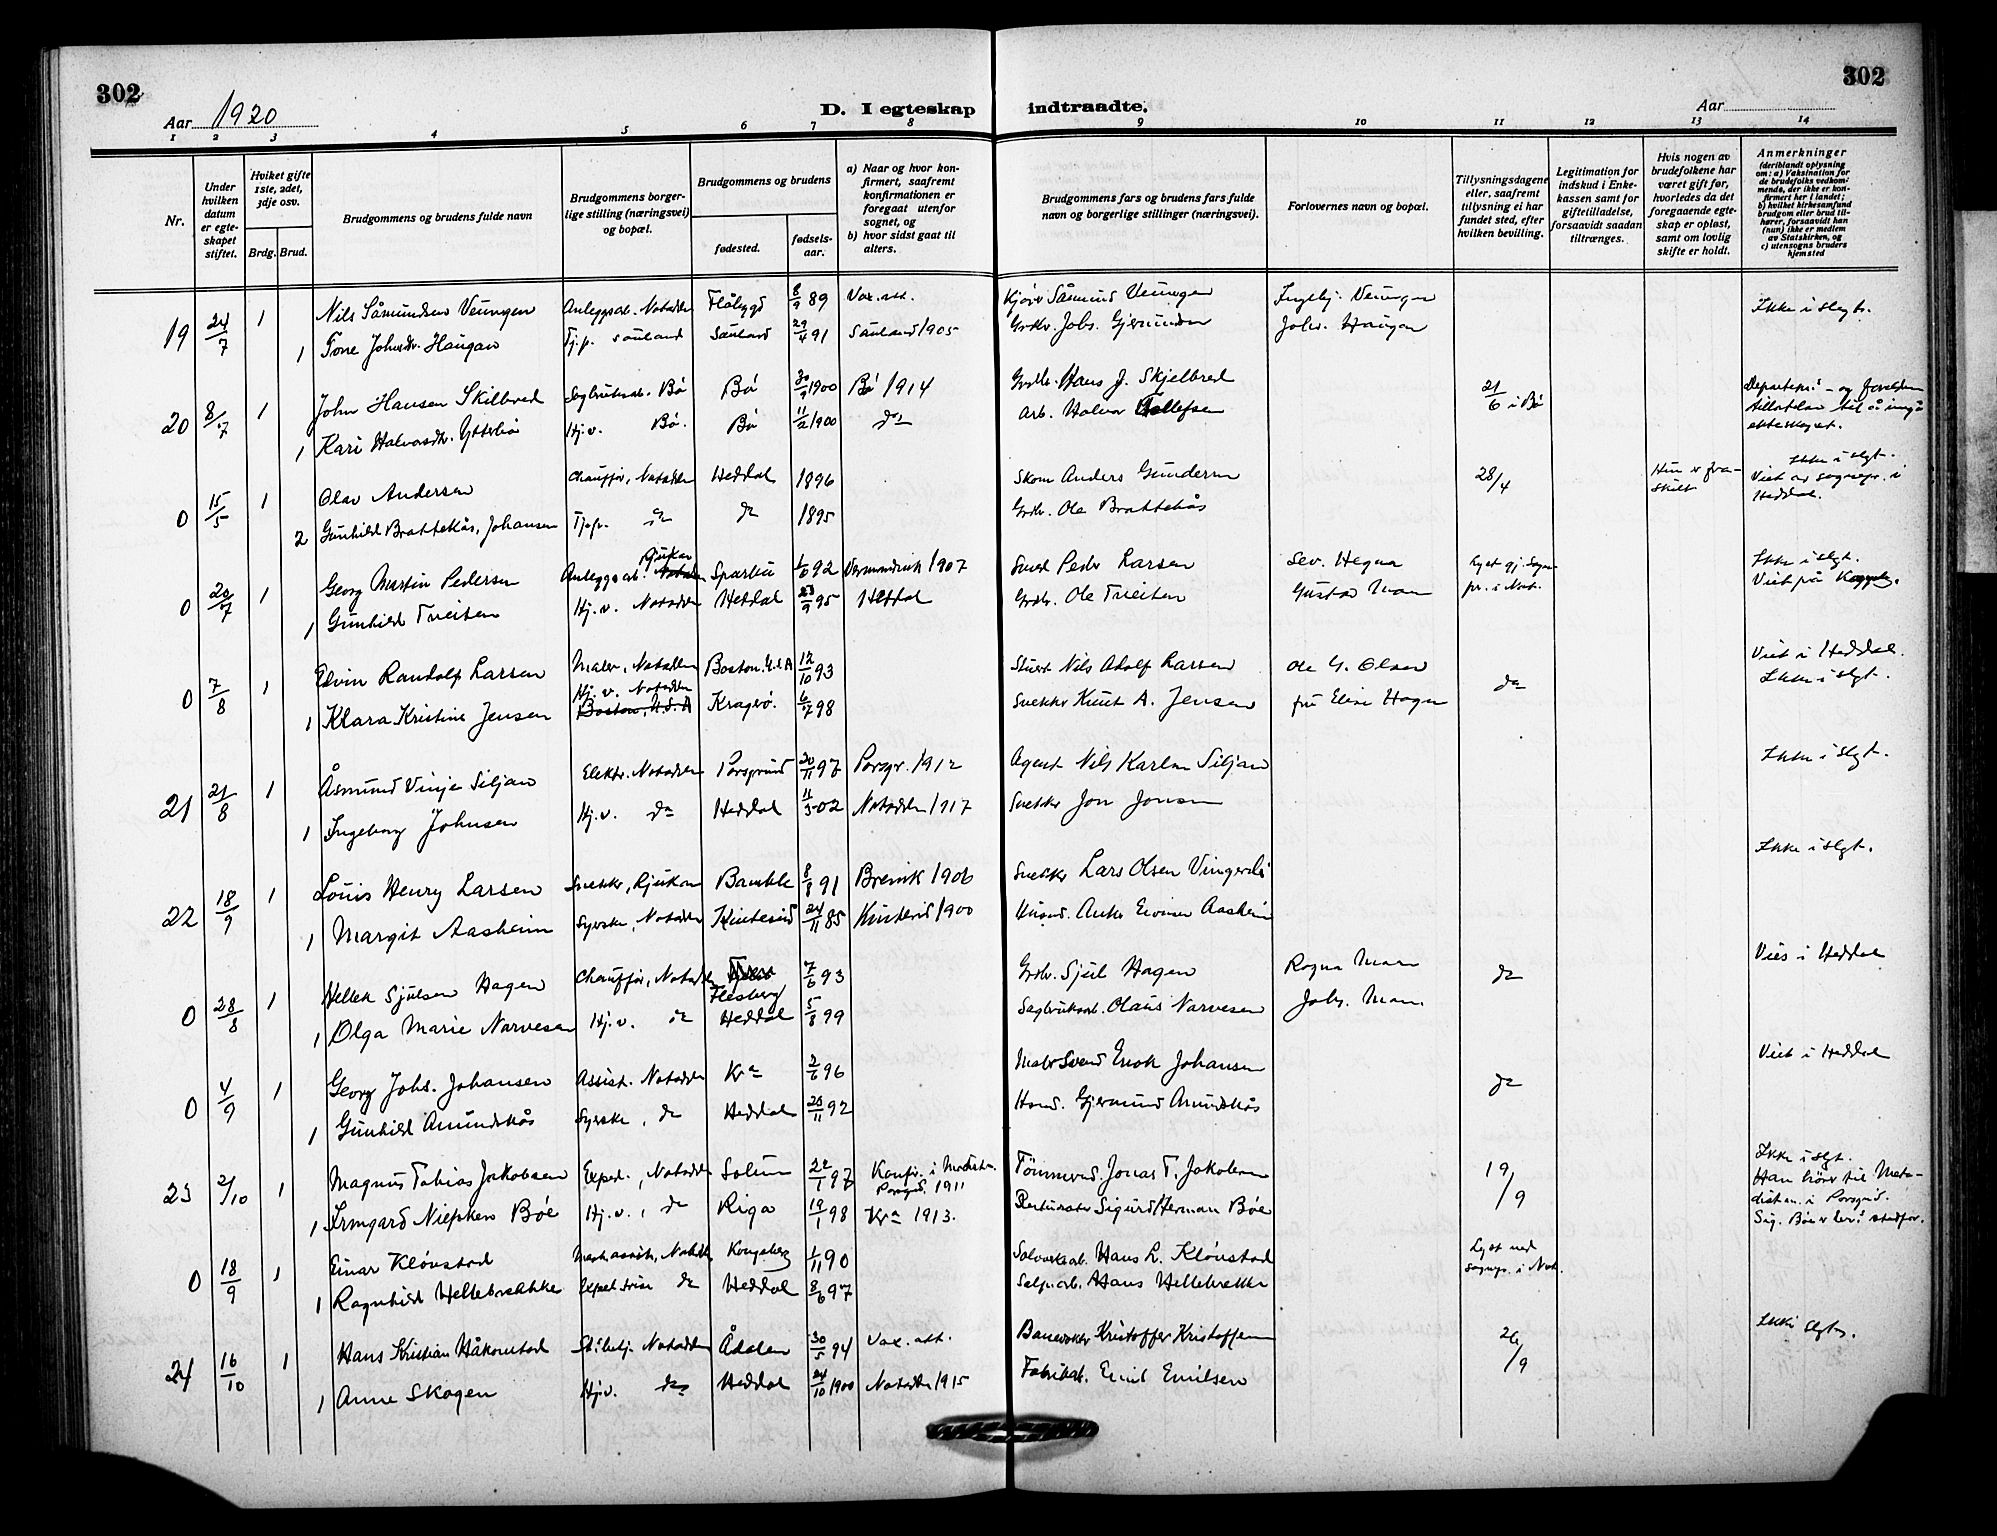 302
302
Aar 1920
D. I egteskap indtraadte.
Aar
1 2 3 4 5 6 7 8 9 10 11 12 13 14
Nr.
Under hvilken datum er egteskapet stiftet.
Hviket gifte 1ste, 2det, 3dje osv.
Brdg. Brud.
Brudgommens og brudens fulde navn
Brudgommens borgerlige stilling (næringsvei) og bopæl.
Brudgommens og brudens
fødested.
fødselsaar.
a) Naar og hvor konfirmert, saafremt konfirmationen er foregaat utenfor sognet, og
b) hvor sidst gaat til alters.
Brudgommens fars og brudens fars fulde navn og borgerlige stillinger (næringsvei).
Forlovernes navn og bopæl.
Tillysningsdagene eller, saafremt tillysning ei har fundet sted, efter hvilken bevilling.
Legitimation for indskud i Enkekassen samt for giftetilladelse, forsaavidt saadan tiltrænges.
Hvis nogen av brudefolkene har været gift før, hvorledes da det foregaaende egteskap er opløst, samt om lovlig skifte er holdt.
Anmerkninger (deriblandt oplysning om: a) Vaksination for de brudefolks vedkommende, der ikke er konfirmert her i landet; b) hvilket kirkesamfund brudgom eller brud tilhører, forsaavidt han (hun) ikke er medlem av Statskirken, og c) utensogns bruders hjemsted
19 24/7 1 Nils Såmundsen Veungen Anleggsarb. Notodden Flåbygd 8/9 89 Vax. att. Såmund Veungen Ingebj. Veungen Ikke i slegt.
1 Tone Johnsdtr. Haugan Tj.p. Sauland Sauland 29/4 91 Sauland 1905 Grdbr. Johs. Gjermundsen Johs. Haugan
20 8/7 1 John Hansen Skilbred Sagbruksarb. Bø Bø 30/9 1900 Bø 1914 Grdbr. Hans J. Skjelbred 21/6 i Bø
1 Kari Halvorsdtr. Ytterbø Hj.v. Bø. Bø 11/2 1900 do Arb. Halvor Tollefsen
0 15/5 1 Olav Andersen Chauffør, Notodden Heddal 1896 Skom Anders Gundersen 28/4 Hun er fraskilt Ikke i slgt. Viet av sognepr. i Heddal.
2 Gunhild Brattekås, Johansen do do 1895 Grdbr. Ole Brattekås
0 20/7 1 Georg Martin Pedersen Anleggsarb. Rjukan Sparbu 92 1907 Peder Larsen Sev. Hegna Ikke i slgt.
1 Gunhild Tveiten Hj.v. Notodden Heddal 23/9 95 Heddal Grdbr. Ole Tveiten Gustav Moen
0 7/8 1 Edvin Randolf Larsen Maler, Notodden Boston U.S.A 12/10 93 Stuert Nils Adolf Larsen Ole G. Olsen do Viet i Heddal. Ikke i slgt.
1 Klara Kristine Jensen Hj.v. Notodden Boston, U.S.A Kragerø. 6/7 98 Snekker Knut A. Jensen fru Elise Hagen
21 21/8 1 Åsmund Vinje Siljan Elektr. Notodden Porsgrund 20/11 97 Porsgr. 1912 Agent Nils Karlsen Siljan Ikke i slgt.
1 Ingeborg Johnsen Hj.v. do Heddal 11/5 02 Notodden 1917 Snekker Jon Jonsen
22 18/9 1 Louis Henry Larsen Snekker, Rjukan Bamble 8/8 91 Brevik 1906 Snekker Lars Olsen Ikke i slgt.
1 Margit Aasheim Syerske, Notodden Hviteseid 24/11 85 Hviteseid 1900 Husmd. Anders Aasheim
0 28/8 1 Hellek Sjulsen Hagen Chauffør, Notodden Flesberg 7/6 93 Grdbr. Sjul Hagen Ragna Moen do Viet i Heddal
1 Olga Marie Narvesen Hj.v. do Heddal 5/8 99 Sagbruksarb. Olaus Narvesen Johs. Moen.
0 4/9 1 Georg Johs. Johansen Assist. Notodden Kra 2/6 96 Enok Johansen do Viet i Heddal
1 Gunhild Amundskås Syerske, do Heddal 25/11 92 Gjermund Amundskås
23 2/10 1 Magnus Tobias Jakobsen Exped., Notodden Solum 22/1 97 Konfir. i Metodistm. Porsgrd. 1911 Tømmermd. Jonas T. Jakobsen 19/9 Ikke i slgt. Han hører til Metodistm. i Porsgrd.
1 Irmgard Niepken Bøe Hj.v., do Riga 19/1 98 Kra 1913. Sigurd Herman Bøe
0 18/9 1 Einar Kløvstad Notodden Kongsberg 1/11 90 Sølvverksarb. Hans L. Kløvstad Lyst ved sognepr. i Not.
1 Ragnhild Hellebrekke Expeditrise do Heddal 8/6 97 Salp.arb. Hans Hellebrekke
24 16/10 1 Hans Kristian Håkonstad Notodden Ådalen 30/5 94 Vax. att. Banevokter Kristoffer Kristoffersen 26/9 Ikke slgtn.
1 Anne Skogen Hj.v. do Heddal 24/10 1900 Notodden 1915 Fabrikarb. Emil Emilsen